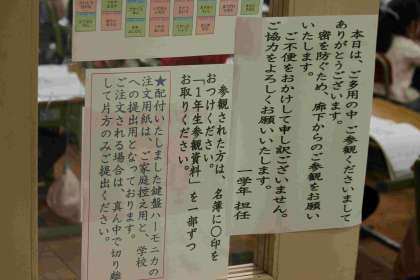 本日は、ご多用の中 ご参観くださいまして
ありがとうございます。
密を防ぐため、廊下からのご参観をお願い
いたします。
ご不便をおかけして申し訳ございません。
ご協力をよろしくお願いいたします。
一学年 担任
参観された方は、名簿に〇印を
おつけください。
「1年生参観資料」を一部ずつ
お取りください。
★配付いたしました鍵盤ハーモニカの
注文用紙は、ご家庭控え用と、学校
への提出用となっております。
ご注文される場合は、真ん中で切り離
して片方のみご提出ください。